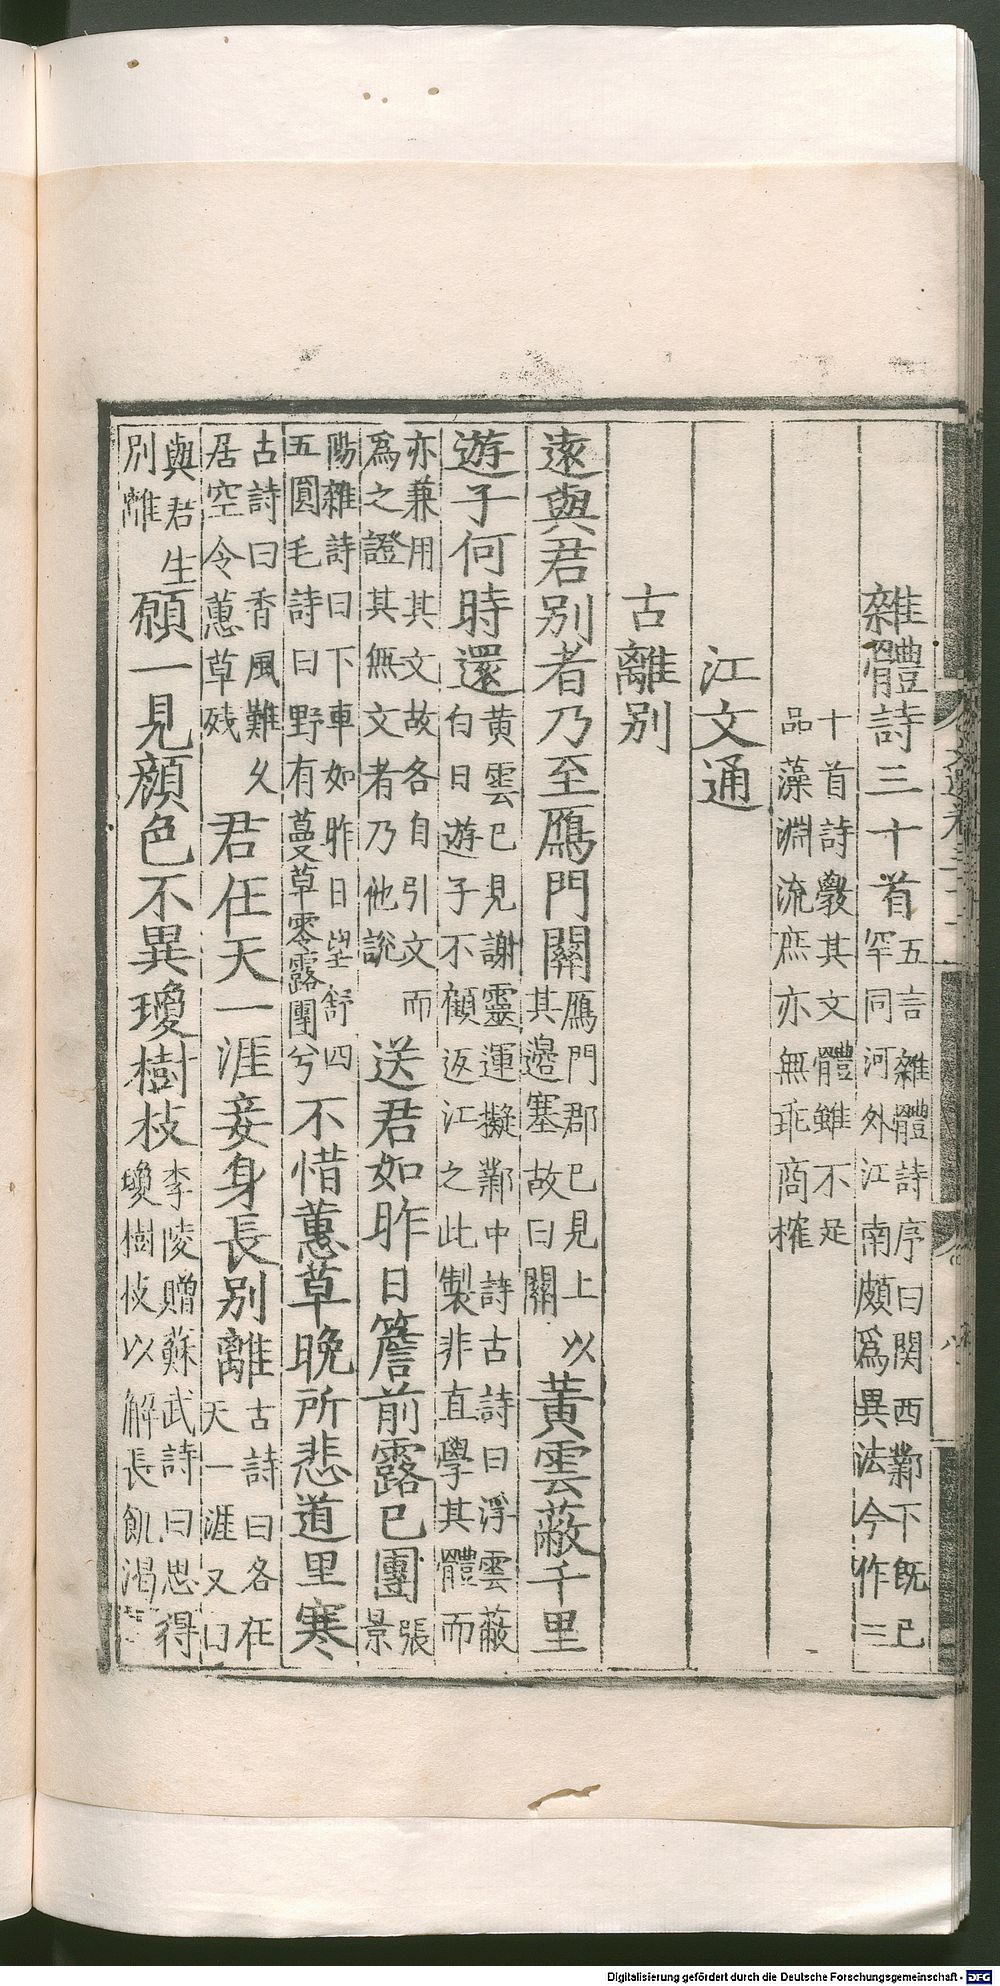 雜體詩三十首五言雜體詩序曰関西鄴下既已罕同河外江南頗爲異法今作三
十首詩斆其文體雖不足品藻淵流庶亦無乖商榷
江文通
古離别
逺與君别者乃至鴈門關鴈門郡已見上其邉塞故曰關以黄雲蔽千里
遊子何時還黄雲已見謝靈運擬鄴中詩古詩曰浮雲蔽白日遊子不顧返江之此製非直學其體而
亦兼用其文故各自引文而爲之證其無文者乃他說送君如昨日簷前露已團張景
陽雜詩曰下車如昨日望舒四五圓毛詩曰野有蔓草零露團兮不惜蕙草晚所悲道里寒
古詩曰香風難久居空令蕙草殘君在天一涯妾身長别離古詩曰各在天一涯又曰
與君生别離願一見顔色不異瓊樹枝李陵贈蘇武詩曰思得瓊樹枝以解長飢渴
Digitalisierung gefördert durch die Deutsche Forschungsgemeinschaft - DFG